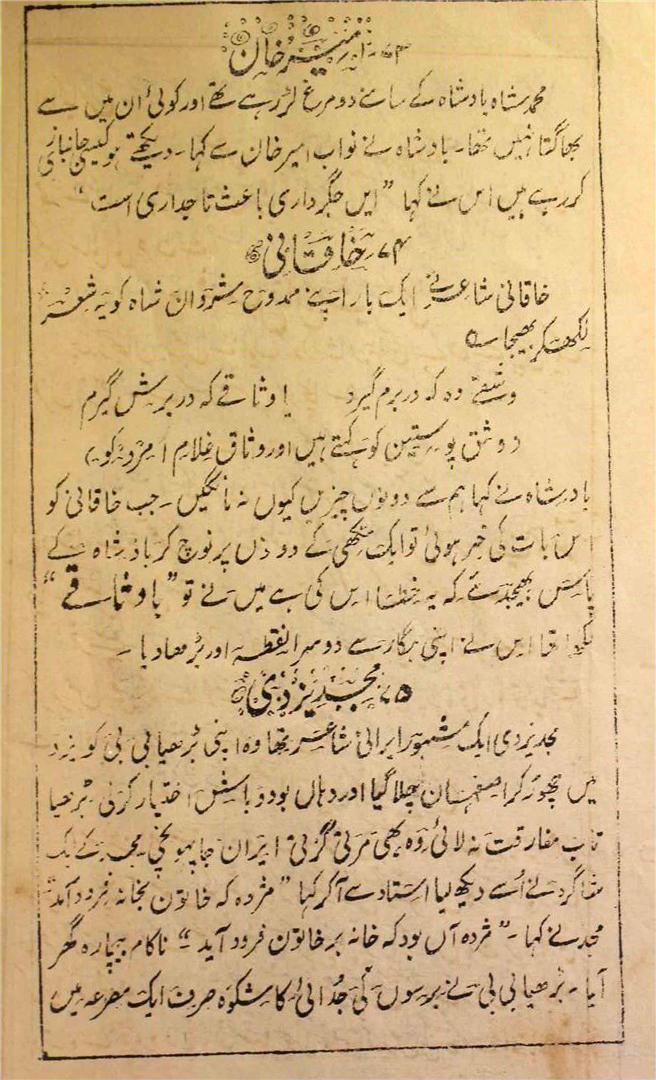 ۷۳۔ امیر خان
محمد شاہ بادشاہ کے سامنے دو مرغ لڑ رہے تھے اور کوئی ان میں سے
بھاگتا نہیں تھا۔ بادشاہ نے نواب امیر خان سے کہا۔ دیکھتے ہو کیسی جانبازی
کر رہے ہیں اس نے کہا ”ایں جگرداری باعث تاجداری است“
۷۴۔ خاقانی
خاقانی شاعر نے ایک بار اپنے ممدوح شروان شاہ کو یہ شعر
لکھکر بھیجا ؎
وشقے دہ کہ در برم گیرد یا وثاقے کہ در برش گیرم
(وشق پوستین کو کہتے ہیں اور وثاق غلام امرد کو)
بادشاہ نے کہا ہم سے دونوں چیزیں کیوں نہ مانگیں۔ جب خاقانی کو
اس بات کی خبر ہوئی تو ایک مکھی کے دونوں پر نوچ کر بادشاہ کے
پاس بھیجدئے کہ یہ خطا اس کی ہے میں نے تو ”با وثاقے“
لکھا تھا اس نے اپنی سے دوسرا نقطہ اور بڑھا دیا۔
۷۵۔ مجد یزدی
مجد یزدی ایک مشہور ایرانی شاعر تھا وہ اپنی بڑھیا بی بی کو یزد
میں چھوڑ کر اصفہان چلا گیا اور وہاں بود و باش اختیار کر لی۔ بڑھیا
تاب مفارقت نہ لائی وہ بھی مرتی گرتی ایران جا پہونچی مجد کے ایک
شاگرد نے اُسے دیکھ لیا استاد سے آ کر کہا ”مژدہ کہ خاتون بخانہ فرود آمد“
مجد نے کہا۔ ”مژدہ آں بود کہ خانہ بر خاتون فرود آید“۔ ناکام بیچارہ گھر
آیا۔ بڑھیا بی بی نے برسوں کی جدائی کا شکوہ صرف ایک مصرعہ میں